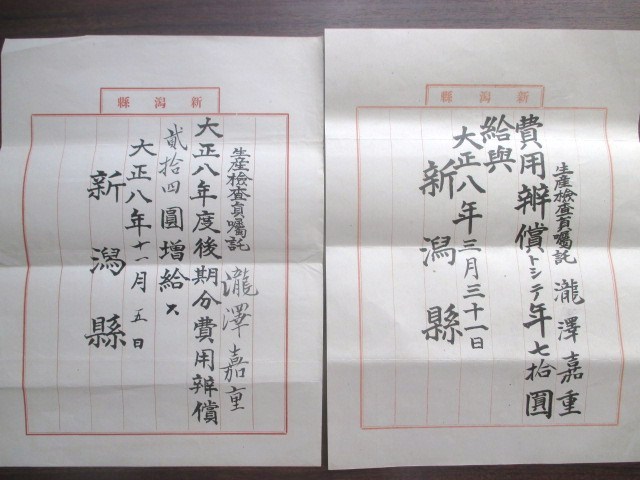 新潟縣
生産檢査員囑託 瀧澤嘉重
費用辨償トシテ年七拾圓
給與
大正八年三月三十一日
新潟縣
新潟縣
生産檢査員囑託 瀧澤嘉重
大正八年度後期分費用辨償
貳拾四圓增給ス
大正八年十一月五日
新潟縣